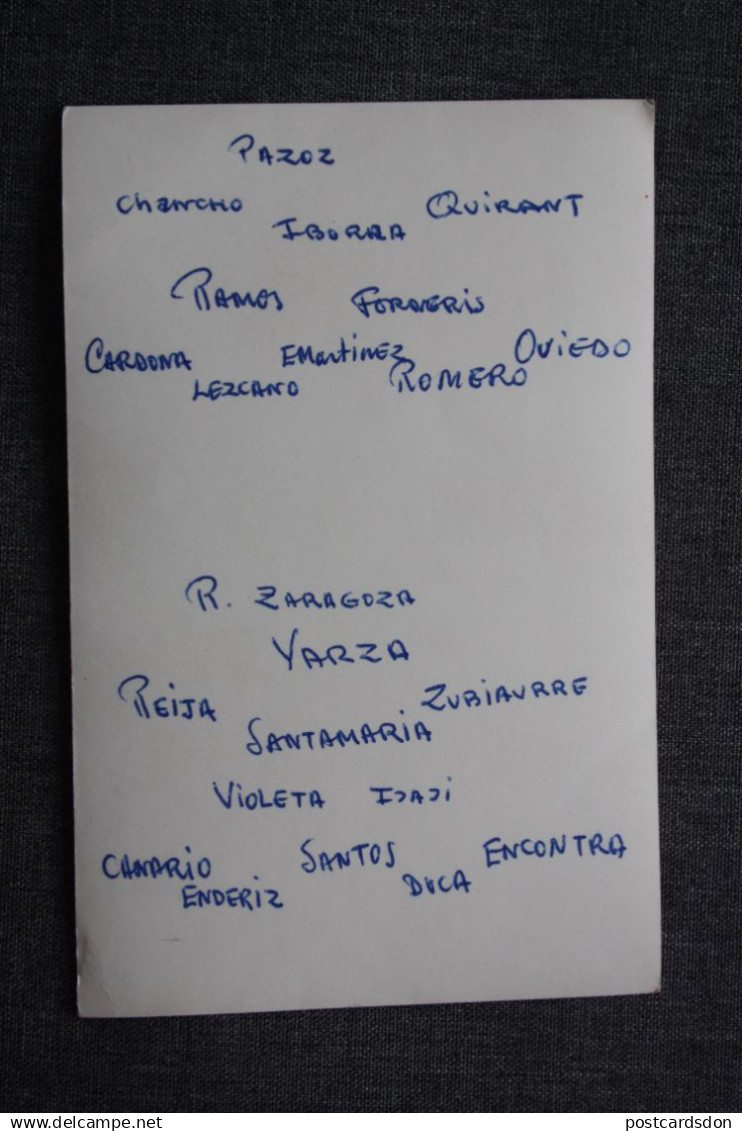 PAZOZ
ChANCHO QUIRANT
IBORRA
RAMOS FORNERIS
CARDONA EMartinez OVIEDO
LEZCANO ROMERO
R. ZARAGOZA
YARZA
REIJA ZUBIAURRE
SANTAMARIA
VIOLETA ISASI
CANARIO SANTOS ENCONTRA
ENDERIZ DUCA
delcampe.net
postcardsdon